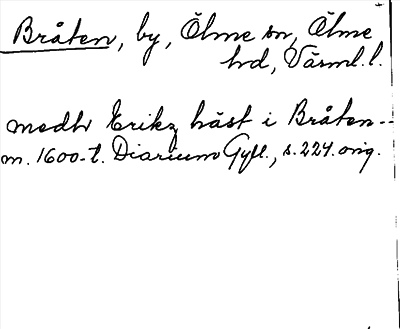 Bråten, by, Ölme sn, Ölme
hd, Värml. l.
medh Erikz häst i Bråten --
m. 1600-t. Diarium Gyll., s. 224. orig.